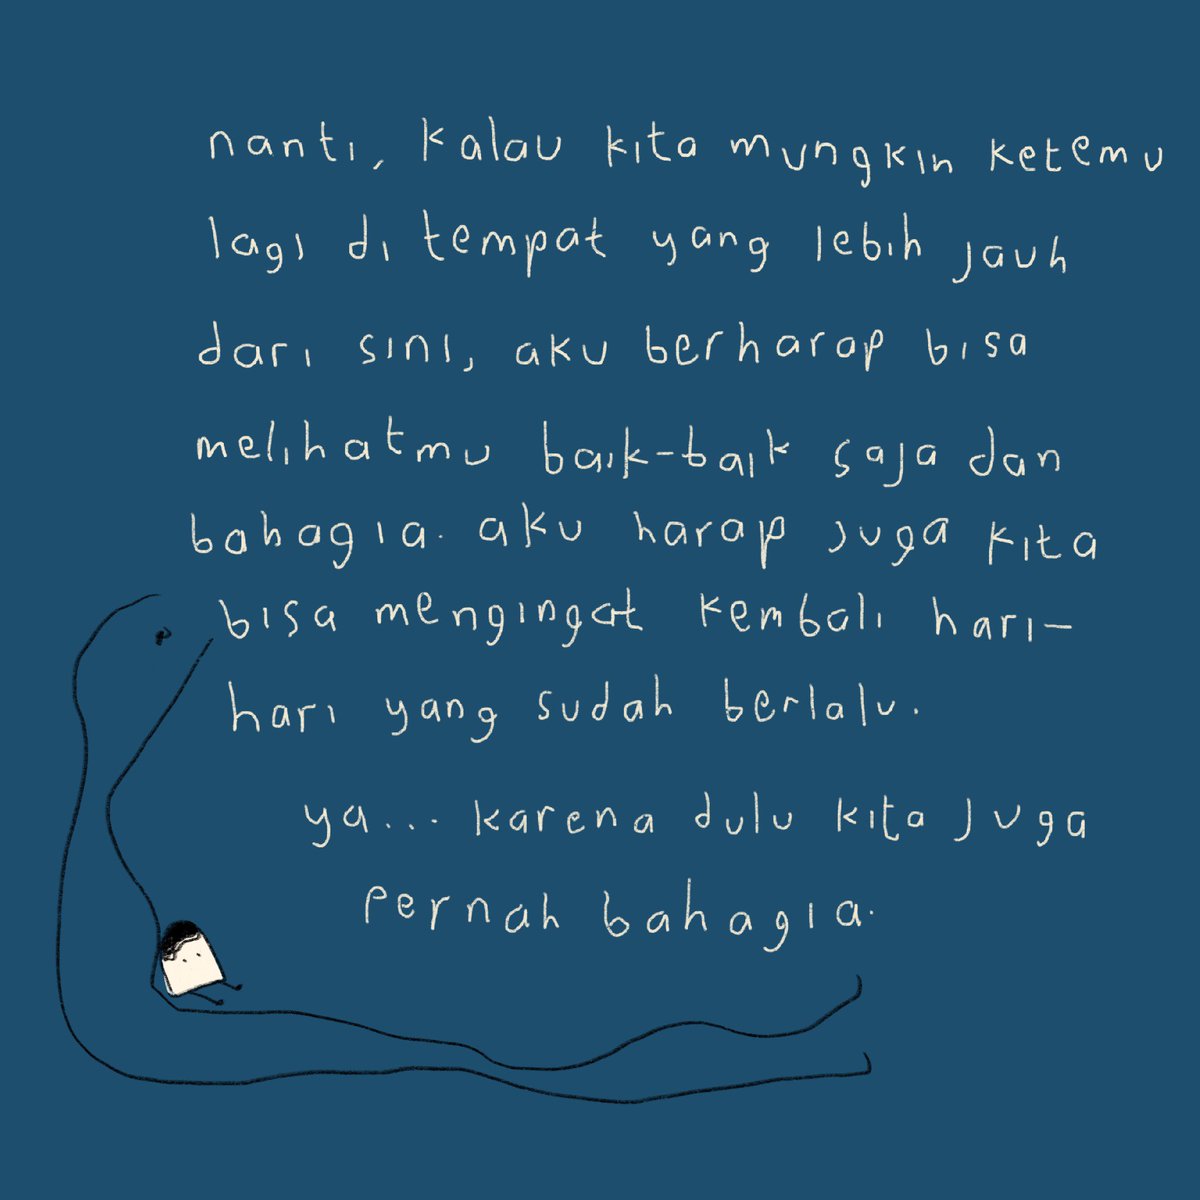 nanti, kalau kita mungkin ketemu
lagi di tempat yang lebih jauh
dari sini, aku berharap bisa
melihatmu baik-baik saja dan
bahagia. aku harap juga kita
bisa mengingat kembali hari-
hari yang sudah berlalu.
ya... karena dulu kita juga
pernah bahagia.